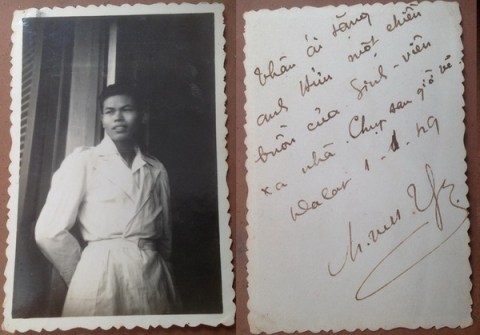 Thân ái tặng
anh Hiên một chiều
buồn của Sinh-viên
xa nhà. Chụp sau giờ về.
Dalat 1-1-49